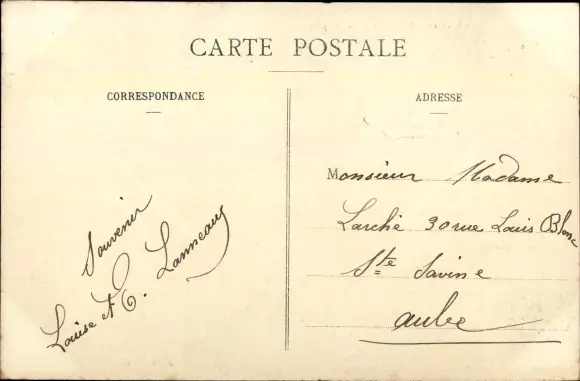 CARTE POSTALE
CORRESPONDANCE
Souvenir
Louise et E. Lanneaux
ADRESSE
Monsieur Madame
Larché 30 rue Louis Blanc
Ste Savine
Aube